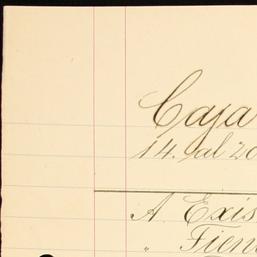 Caja
14. al 20
A Exis
" Tien